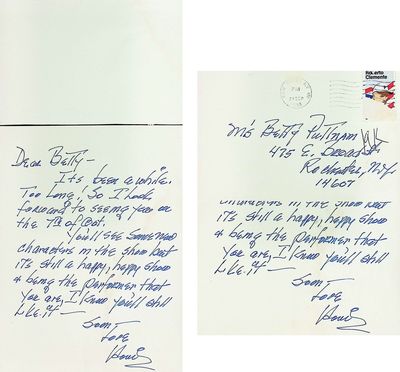 Dear Betty —
It's been a while.
Too long! So I look
forward to seeing you on
the 7th of Oct.
You'll see some new
characters in the show but
it's still a happy, happy show
& being the performer that
you are, I know you'll still
like it —
Soon!
Love
Roberto
Clemente
Ms Betty Putnam
475 E. Broad St
Rochester, N.Y.
14607
characters in the show but
it's still a happy, happy show
& being the performer that
you are, I know you'll still
like it —
Soon!
Love